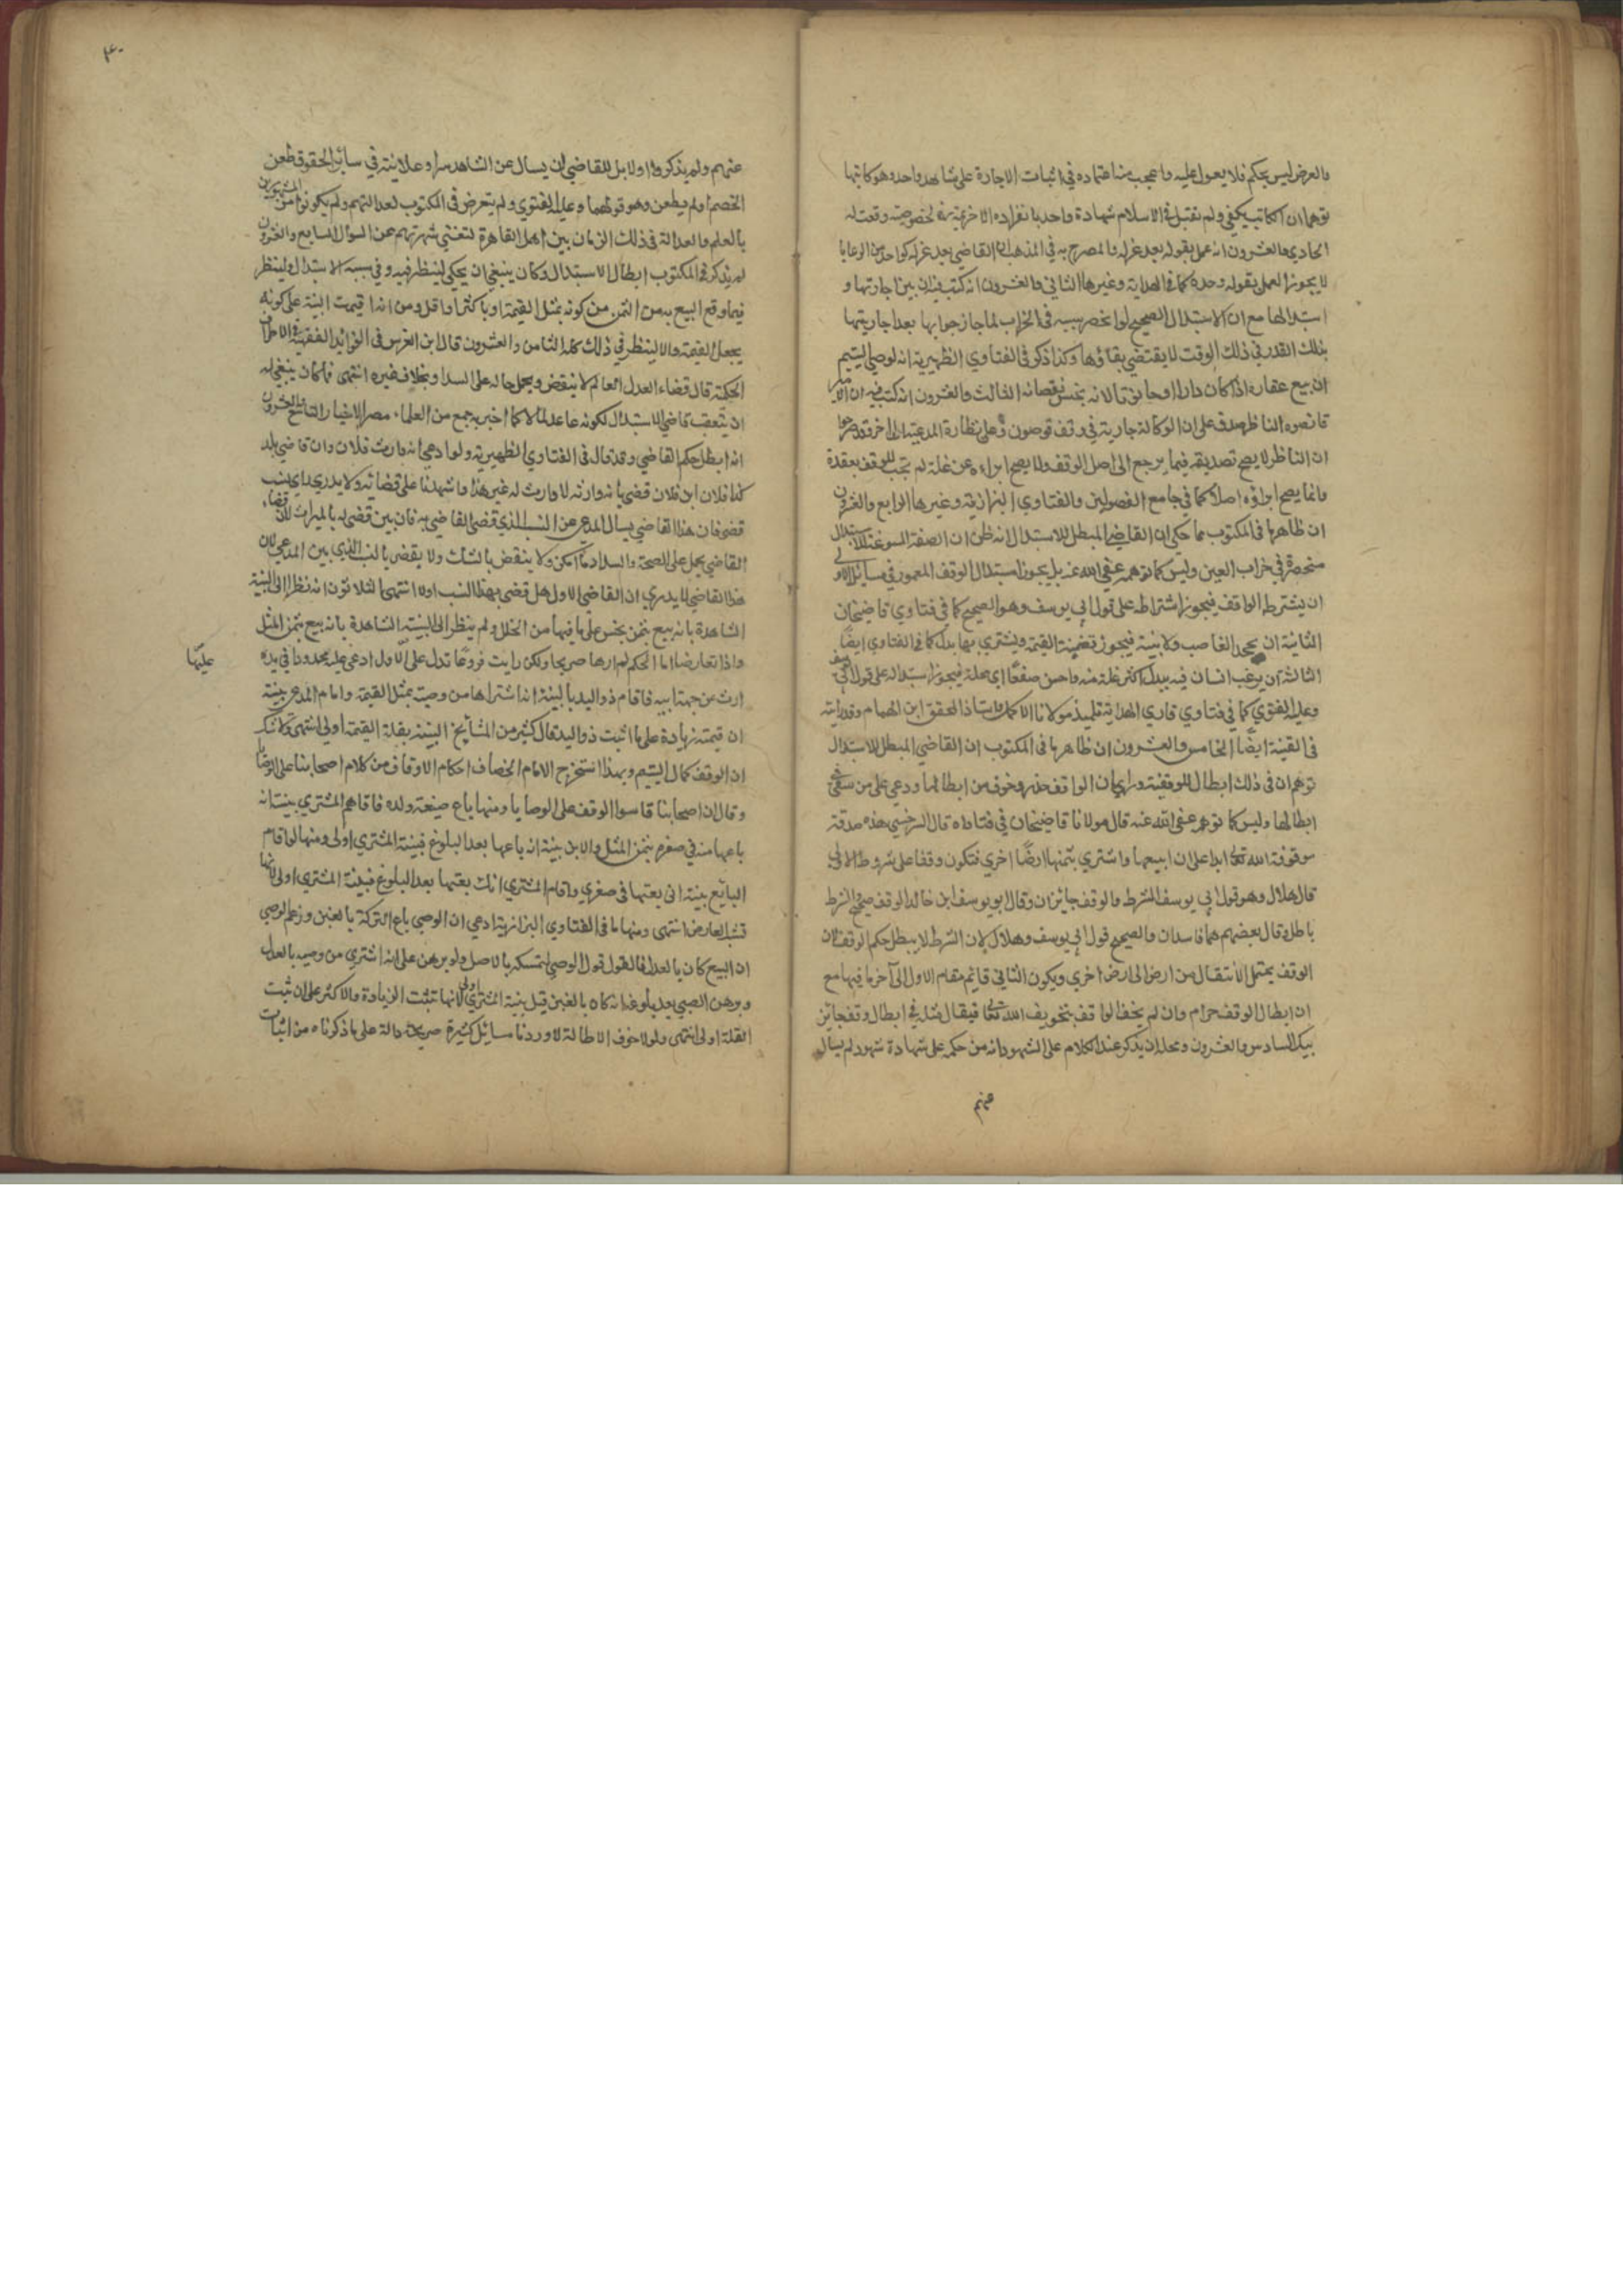 والعرض ليس بحكم فلا يعول عليه واعجب منه اعتماده في اثبات الاجارة على شاهد واحد وهو كاتبها
توهما ان الكاتب يكفي ولم تقبل في الاسلام شهادة واحد بانفراده الا خزيمة لخصوصية وقعت له
الحادي والعشرون انه عمل بقوله بعد عزله والمصرح به في المذهب ان القاضي بعد عزله كواحد من الرعايا
لا يجوز العمل بقوله وحده كما في الهداية وغيرها الثاني والعشرون انه كتب فيه ان بين اجارتها و
استبدالها مع ان الاستبدال الصحيح لو انحصر سببه في الخراب لما جاز جوابها بعد اجارتها
بذلك القدر في ذلك الوقت لا يقتضي بقاؤها وكذا ذكر في الفتاوي الظهيرية انه لو صي اليتيم
ان بيع عقاره اذا كان دارا او حانوتا لانه بخس نقصانه الثالث والعشرون انه كتب فيه ان الامير
قانصوه الناظر صدق على ان الوكالة جارية في وقف قوصون وعلى نظارة المدعية الى اخره وقد صرحوا
ان الناظر لا يصح تصديقه فيما يرجع الى اصل الوقف ولا يصح ابراءه عن غلة لم تجب للوقف بعقده
وانما يصح ابراؤه اصلا كما في جامع الفصولين والفتاوي البزازية وغيرها الرابع والعشرون
ان ظاهر ما في المكتوب مما حكي ان القاضي المبطل للاستبدال انه ظن ان الصفة المسوغة للاستبدال
منحصرة في خراب العين وليس كما توهم عفى الله عنه بل يجوز استبدال الوقف المعمور في مسائل الاولى
ان يشترط الواقف فيجوز اشتراطه على قول ابي يوسف وهو الصحيح كما في فتاوي قاضيخان
الثانية ان يجحد الغاصب ولا بينة فيجوز تضمينه القيمة ويشتري بها بدله كما في الفتاوي ايضا
الثالثة ان يرغب انسان فيه ببدل اكثر غلة منه واحسن صقعا اي محلة فيجوز استبداله على قول ابي يوسف
وعليه الفتوي كما في فتاوي قاري الهداية تلميذ مولانا الاكمل واستاذ المحقق ابن الهمام وقد رايته
في القنية ايضا الخامس والعشرون ان ظاهر ما في المكتوب ان القاضي المبطل للاستبدال
توهم ان في ذلك ابطال للوقفية وراي ان الواقف حذر وخوف من ابطالها ودعي على من سعى في
ابطالها وليس كما توهم عفى الله عنه قال مولانا قاضيخان في فتاواه قال السرخسي هذه صدقة
موقوفة لله تعالى ابدا على ان ابيعها واشتري بثمنها ارضا اخري فتكون وقفا على شروط الاولى
قال هلال وهو قول ابي يوسف الشرط والوقف جائزان وقال ابو يوسف ابن خالد الوقف صحيح والشرط
باطل وقال بعضهم هما فاسدان والصحيح قول ابي يوسف وهلال لان الشرط لا يبطل حكم الوقف لان
الوقف يحتمل الانتقال من ارض الى ارض اخري ويكون الثاني قائم مقام الاول الى آخر ما فيها مع
ان ابطال الوقف حرام وان لم يخف الواقف بتخويف الله تعالى فيقال مثله في ابطال وقف جائز
بيكل السادس والعشرون ومحله ان يذكر عند الكلام على الشهود انه من حكمه على شهادة شهود لم يسال
عنهم
٤٠
عنهم ولم يذكر واولا بل للقاضي ان يسال عن الشاهد سرا وعلانية في سائر الحقوق طعن
الخصم او لم يطعن وهو قولهما وعليه الفتوي ولم يتعرض في المكتوب لعدالتهم ولم يكونوا من المشهورين
بالعلم والعدالة في ذلك الزمان بين اهل القاهرة لتغني شهرتهم عن السوال السابع والعشرون
لم يذكر في المكتوب ابطال الاستبدال وكان ينبغي ان يحكي لينظر فيه وفي سببه الاستبدال ولينظر
فيما وقع البيع به من الثمن من كونه بمثل القيمة او باكثر او اقل ومن انه اقيمت البينة على كونه
يجعل القيمة والا لينظر في ذلك كله الثامن والعشرون قال ابن الغرس في الفوائد الفقهية في الاطراف
الحكمية قال قضاء العدل العالم لا ينقض ويحمل حاله على السداد بخلاف غيره انتهى فما كان ينبغي له
ان يتعقب قاضي الاستبدال لكونه عدلا عالما كما اخبر به جمع من العلماء مصر الاخيار التاسع والعشرون
انه ابطل حكم القاضي وقد قال في الفتاوي الظهيرية ولو ادعي انه وارث فلان وان قاضي بلد
كذا فلان ابن فلان قضي بانه وارثه لا وارث له غير هذا واشهدنا على قضائه ولا يدري باي نسب
قضي فان هذا القاضي يسال المدعي عن النسب الذي قضي القاضي به فان بين قضي له بالميراث لان قضاء
القاضي يحمل على الصحة والسداد ما امكن ولا ينقض بالشك ولا يقضي بالنسب الذي بين المدعي لان
هذا القاضي لا يدري ان القاضي الاول هل قضي بهذا النسب اولا انتهى الثلاثون انه نظر الى البينة
الشاهدة بانه بيع بثمن بخس على ما فيها من الخلل ولم ينظر الى البينة الشاهدة بانه بيع بثمن المثل
واذا تعارضا اما الحكم لم ارها صريحا ولكن رايت فروعا تدل على الاول ادعي عليه محدودا في يده
عليها
ارث عن جهة ابيه فاقام ذو اليد بالبينة انه اشتراها من وصيه بمثل القيمة واقام المدعي بينة
ان قيمته زيادة على ما اثبت ذو اليد قال كثير من المشايخ البينة بقلة القيمة اولى انتهى ولا شك
ان الوقف كمال اليتيم وبهذا استخرج الامام الخصاف احكام الاوقاف من كلام اصحابنا على الوصايا
وقال ان اصحابنا قاسوا الوقف على الوصايا ومنها باع ضيعة ولده فاقام المشتري بينة انه
باعها منه في صغره بثمن المثل والابن بينة انه باعها بعد البلوغ فبينة المشتري اولى ومنها لو اقام
البايع بينة اني بعتها في صغري واقام المشتري انك بعتها بعد البلوغ فبينة المشتري اولى لانها
تثبت العارض انتهى ومنها ما في الفتاوي البزازية ادعي ان الوصي باع التركة بالغبن وزعم الوصي
ان البيع كان بالعدل فالقول قول الوصي لتمسكه بالاصل ولو برهن على انه اشتري من وصيه بالعدل
وبرهن الصبي بعد بلوغه انه كان بالغبن قيل بينة المشتري اولى لانها تثبت الزيادة والاكثر على ان تثبت
القلة اولى انتهى ولولا خوف الاطالة لاوردنا مسائل كثيرة صريحة دالة على ما ذكرناه من اثبات